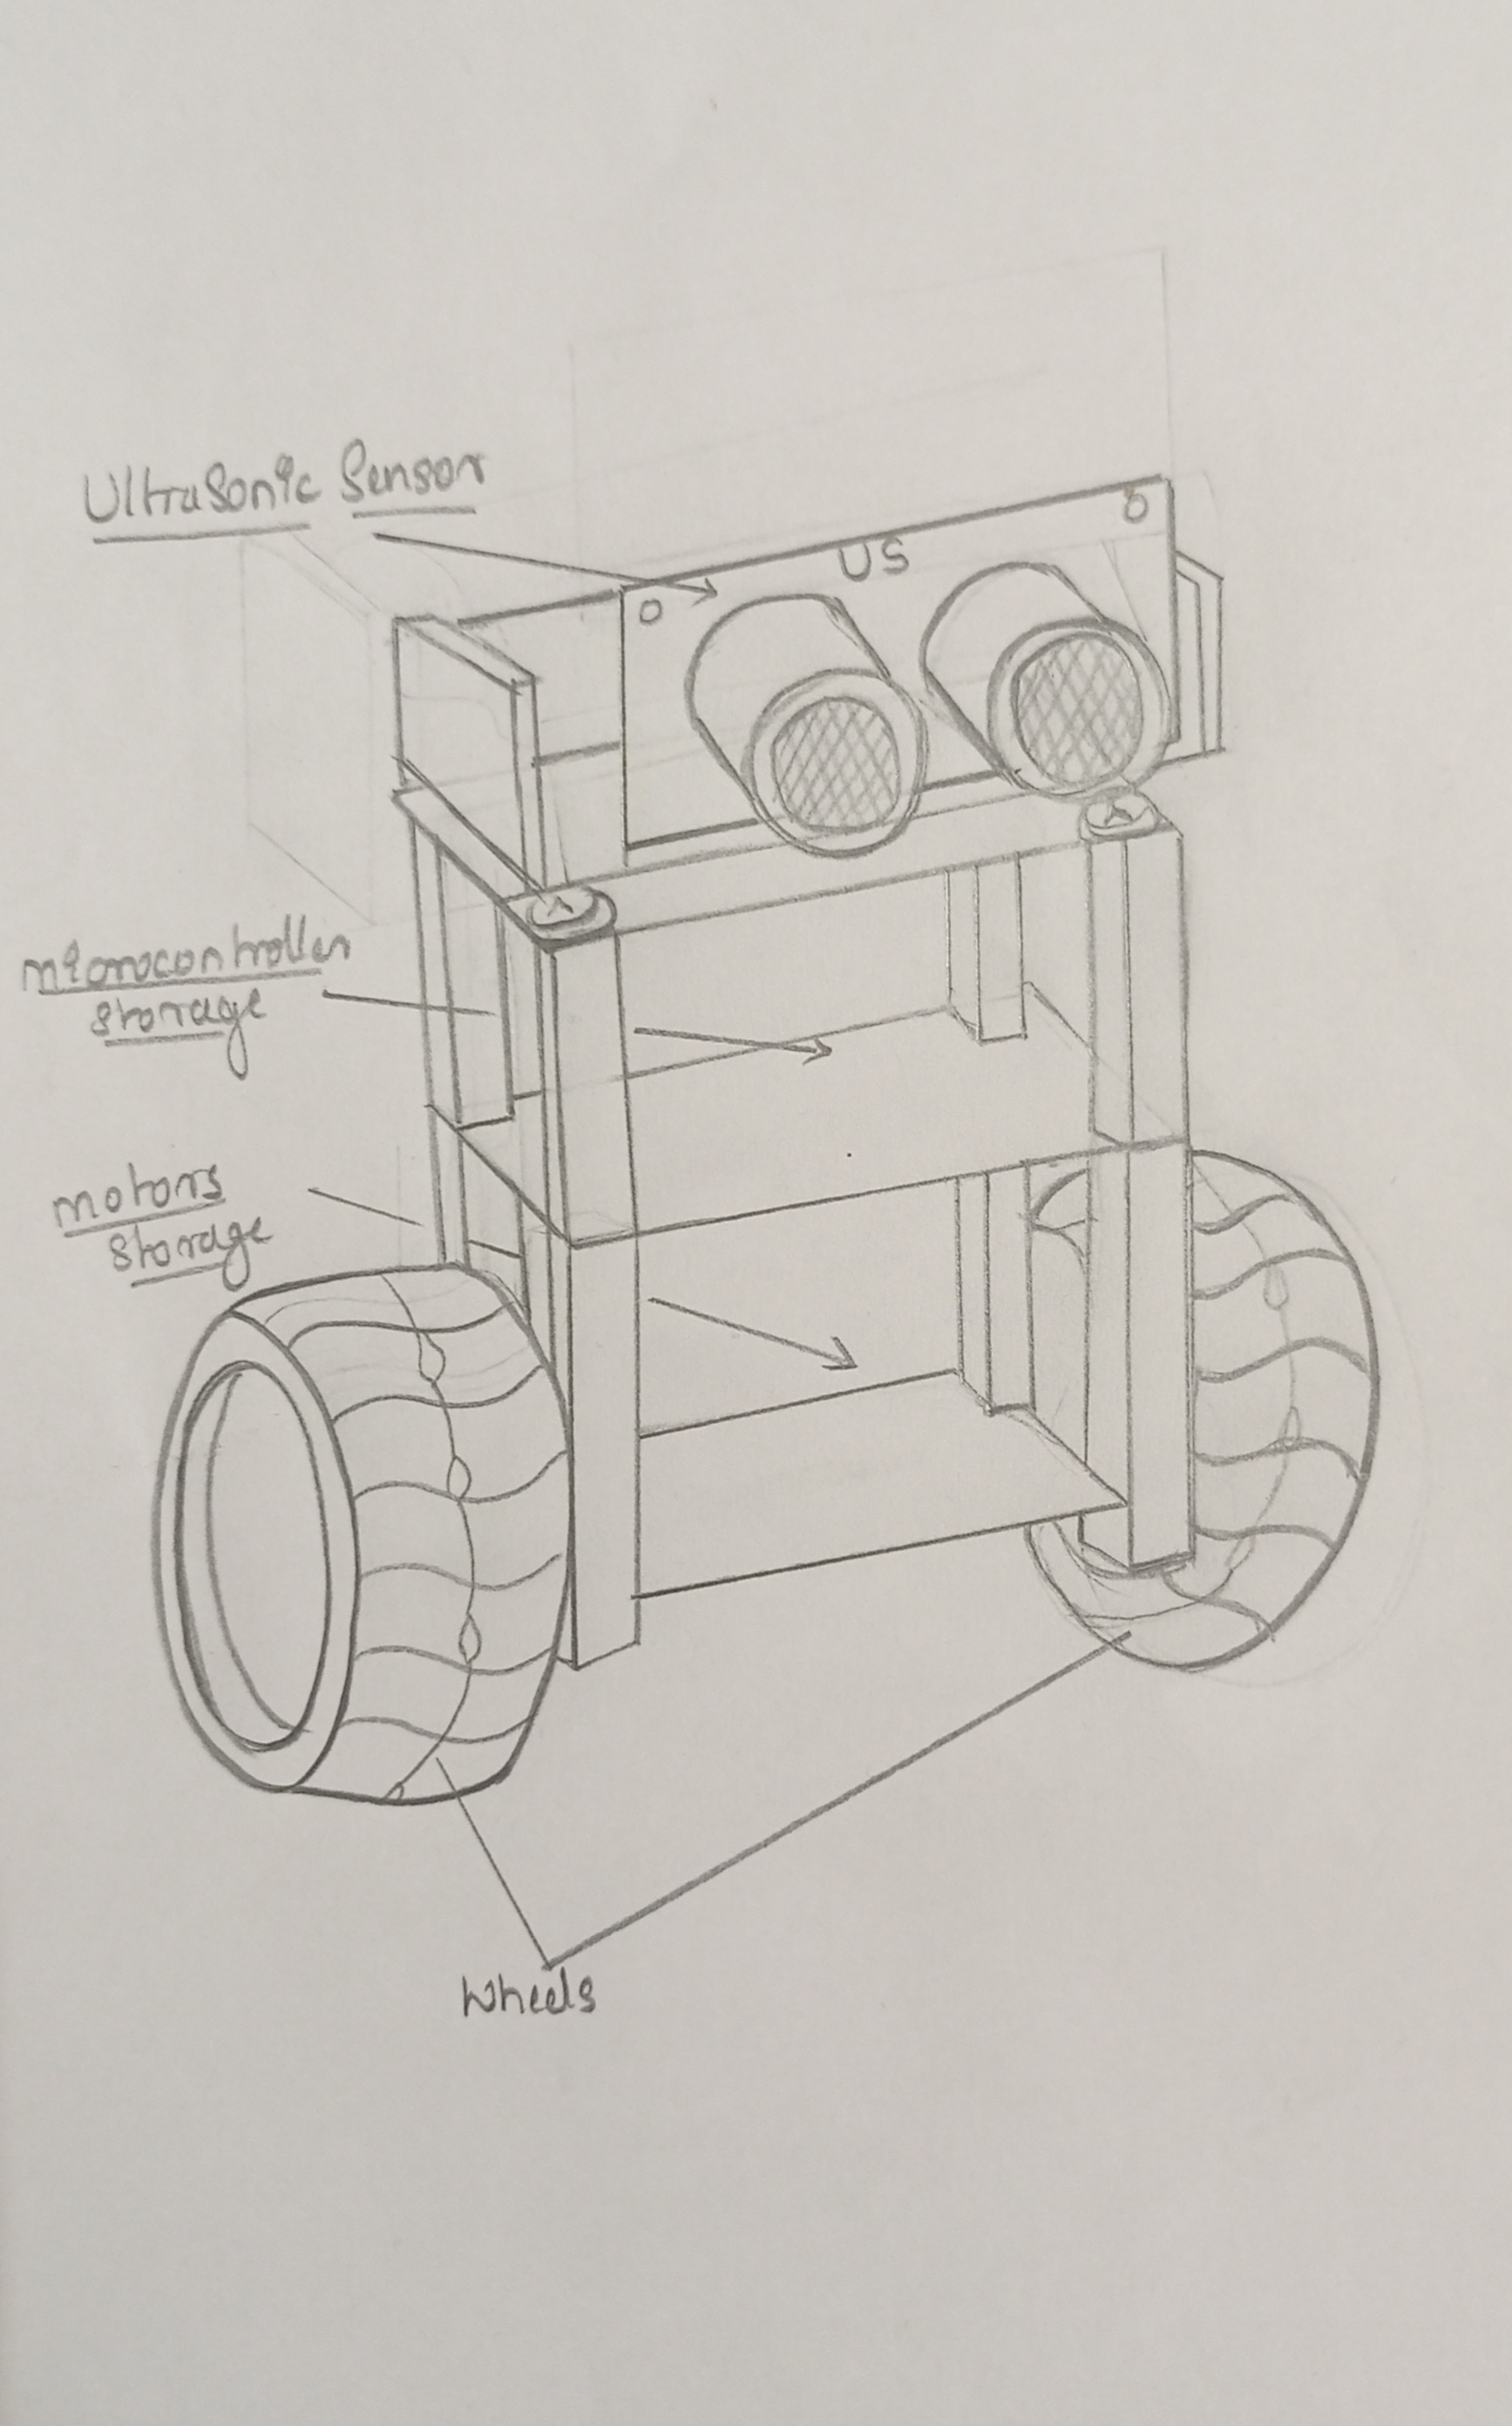 Ultrasonic Sensor
US
microcontroller
storage
motors
storage
Wheels